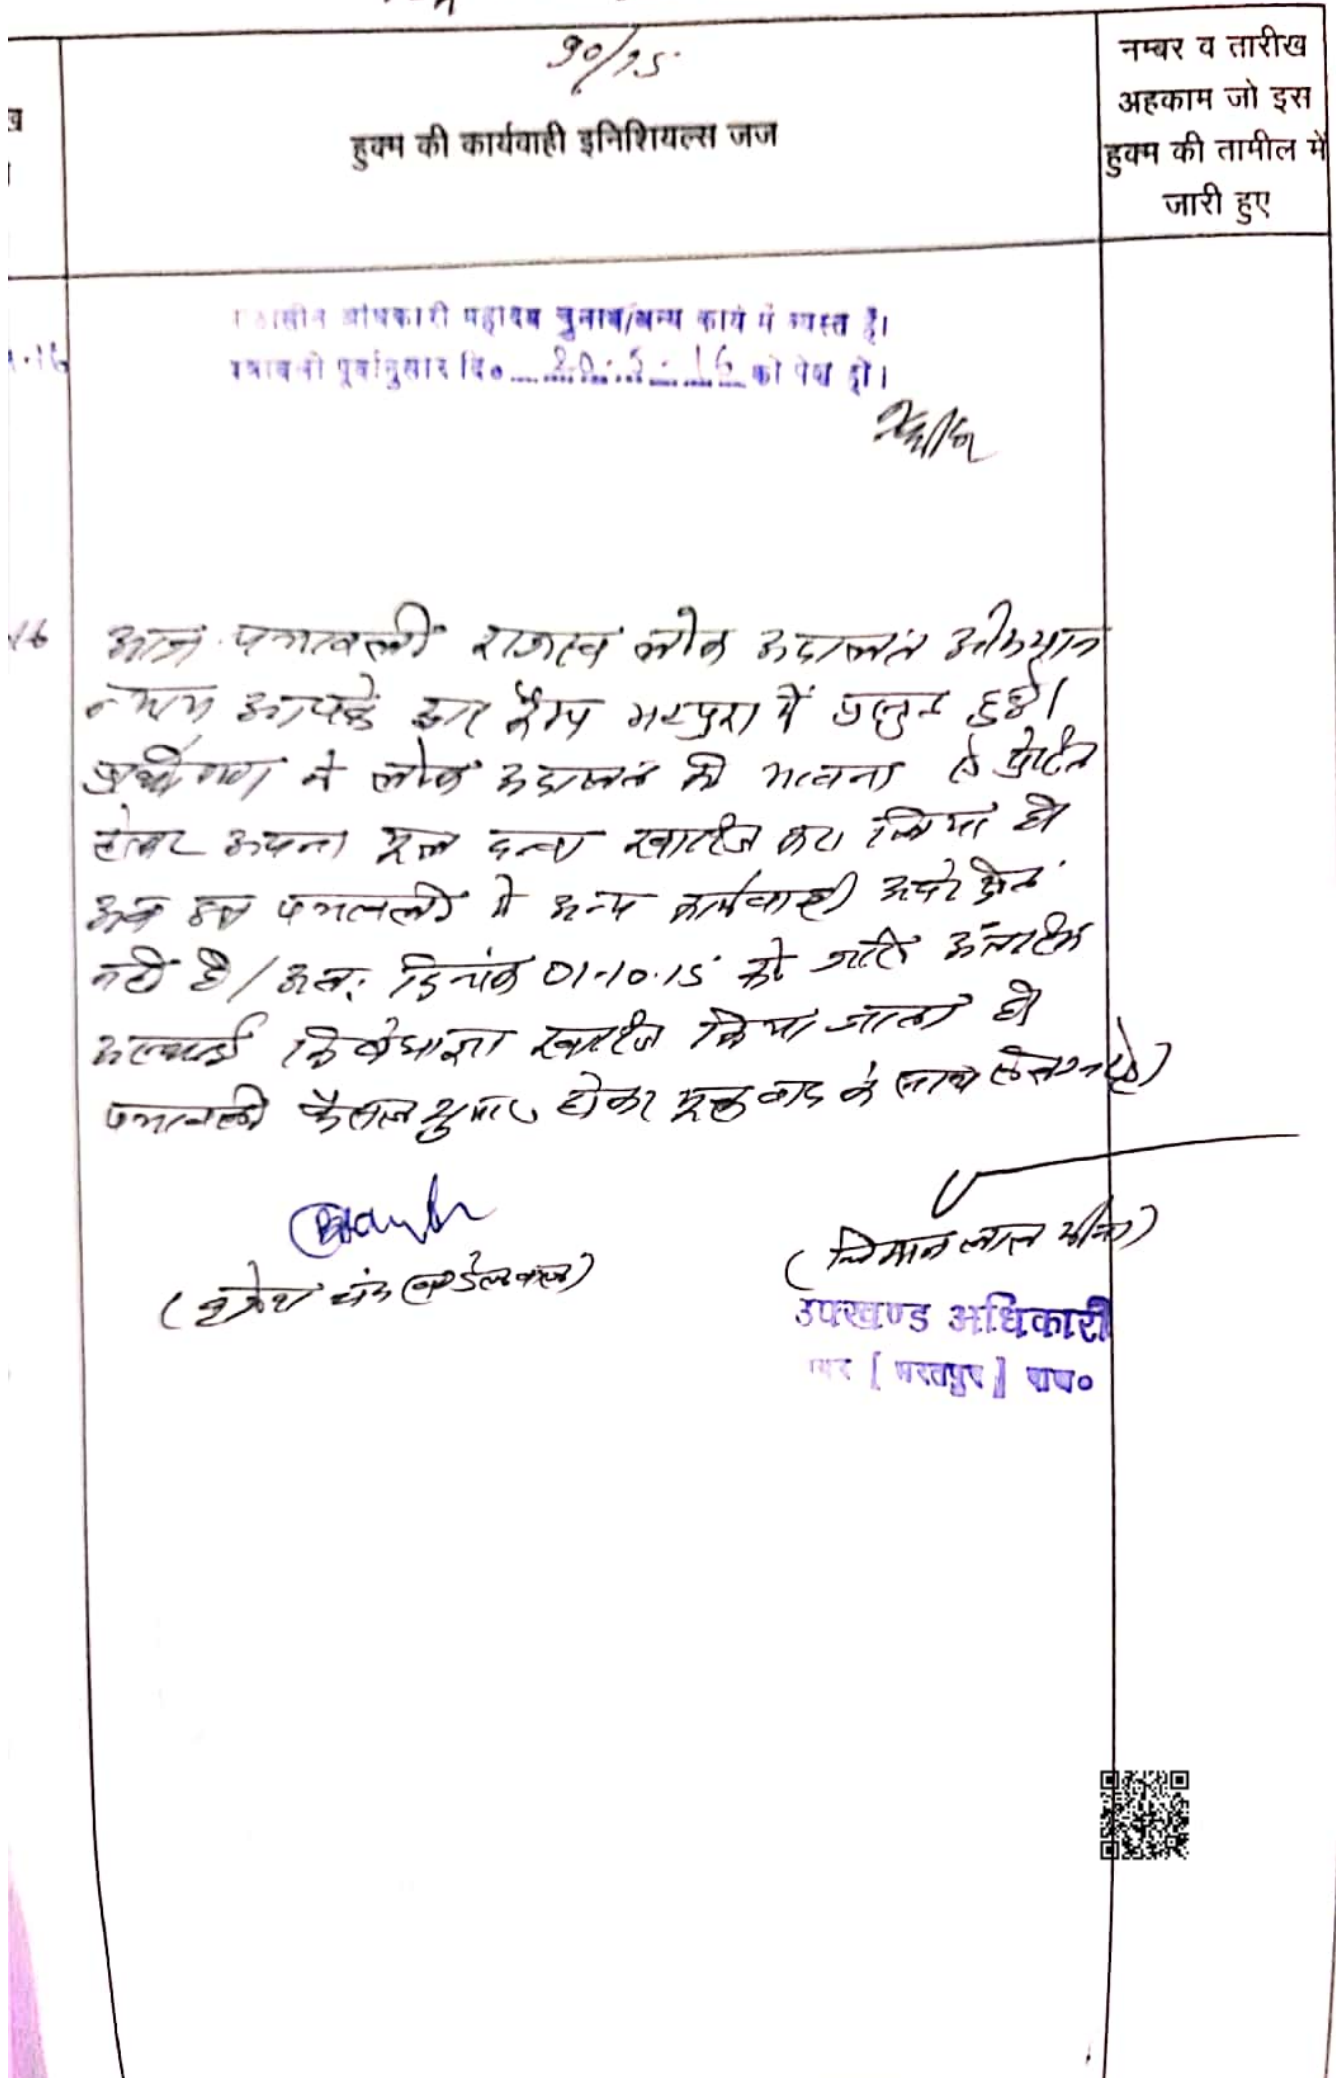 90/15
हुक्म की कार्यवाही इनिशियल्स जज
नम्बर व तारीख
अहकाम जो इस
हुक्म की तामील में
जारी हुए
अधिकारी महोदय चुनाव/अन्य कार्य में व्यस्त है।
पत्रावली पूर्वानुसार दि० 20.5.16 को पेश हो।
16
आज पत्रावली राजस्व लोक अदालत अभियान
न्याय आपके द्वार कैम्प में प्रस्तुत हुई।
प्रार्थीगण ने लोक अदालत की भावना से प्रेरित
होकर अपना मूल दावा खारिज करा लिया है
अब इस पत्रावली में अन्य कार्यवाही अपेक्षित
नहीं है। अतः दिनांक 01-10-15 को जारी अंतरिम
अस्थाई निषेधाज्ञा खारिज किया जाता है
पत्रावली फैसल शुमार होकर मूल वाद के साथ संलग्न रहे।
उपखण्ड अधिकारी
[भरतपुर] राज०